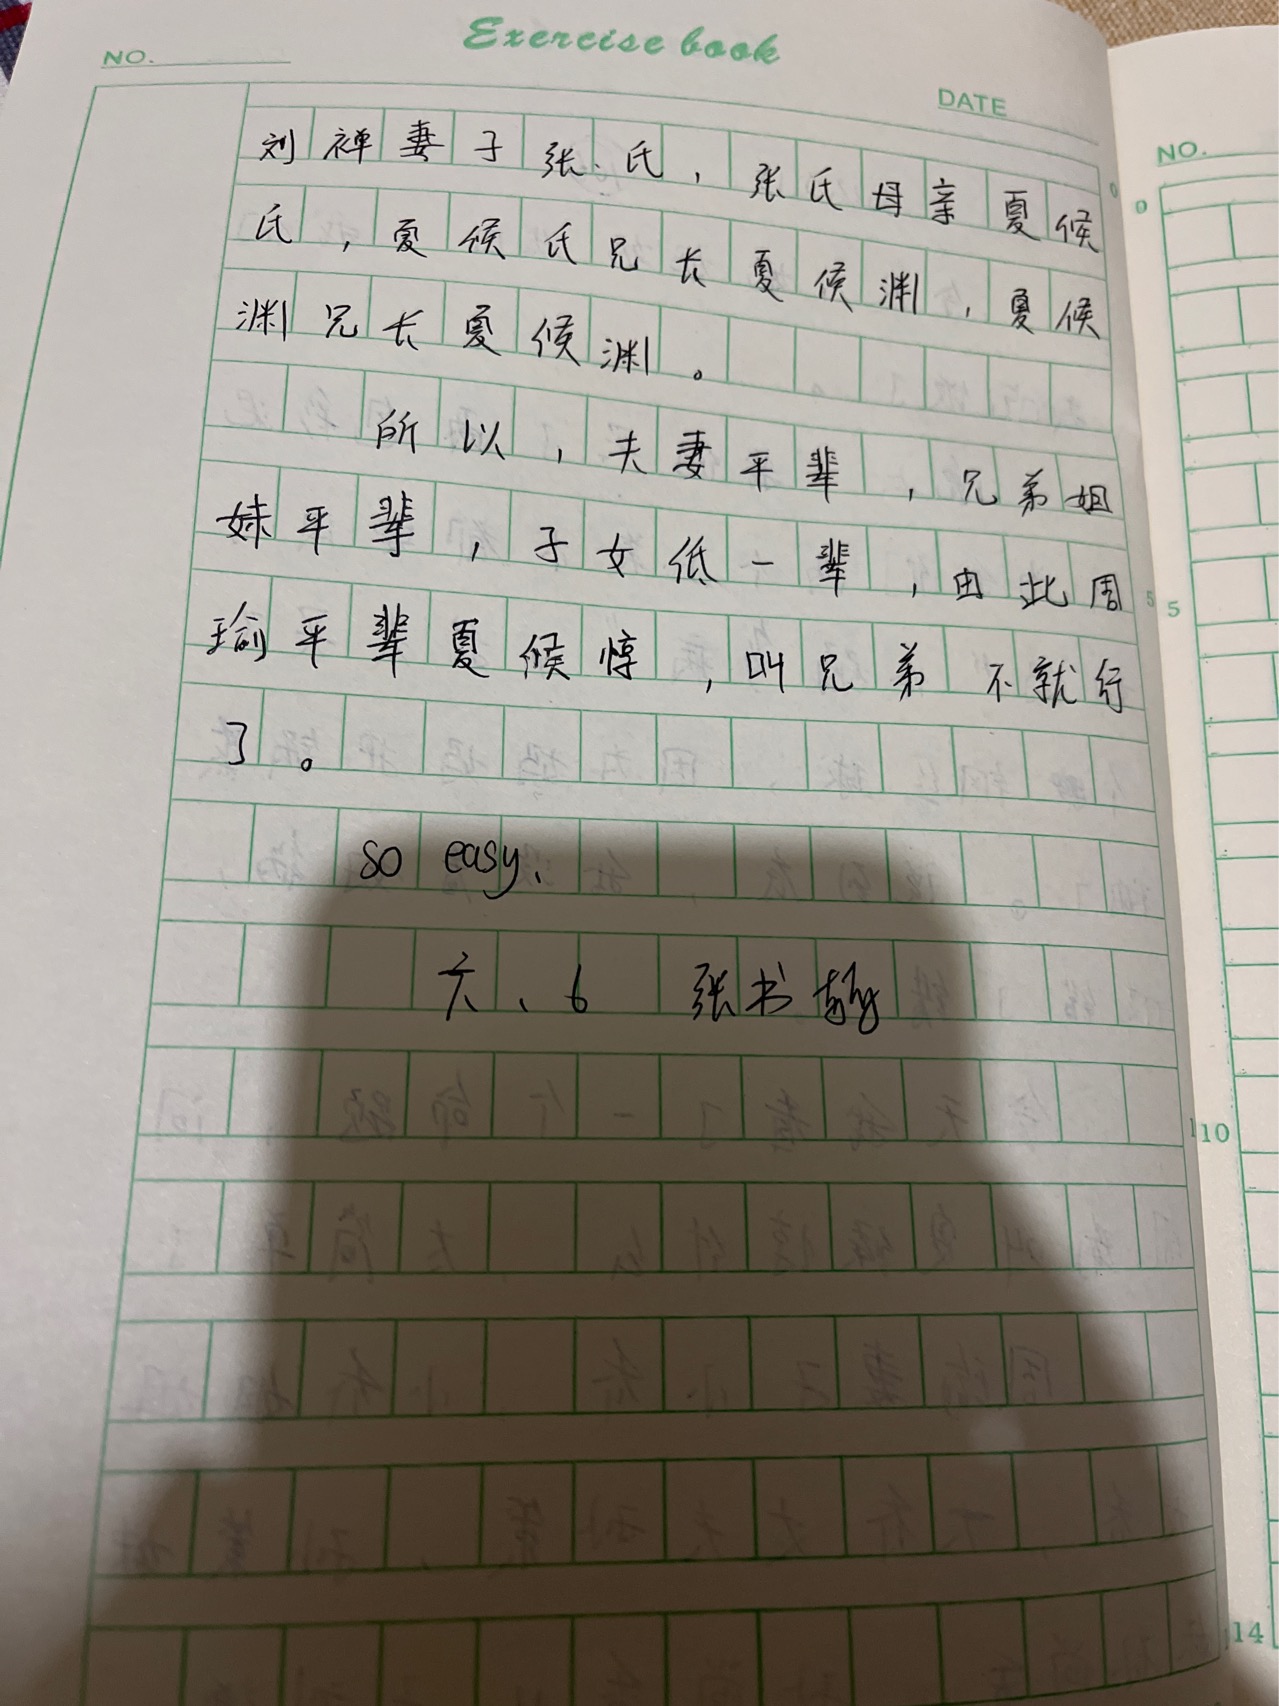 Exercise book
NO.
DATE
刘禅妻子张氏，张氏母亲夏候
氏，夏候氏兄长夏候渊，夏候
渊兄长夏候渊。
所以，夫妻平辈，兄弟姐
妹平辈，子女低一辈，由此周
瑜平辈夏候惇，叫兄弟不就行
了。
so easy.
六、6 张书
NO.
0
0
5
5
10
14